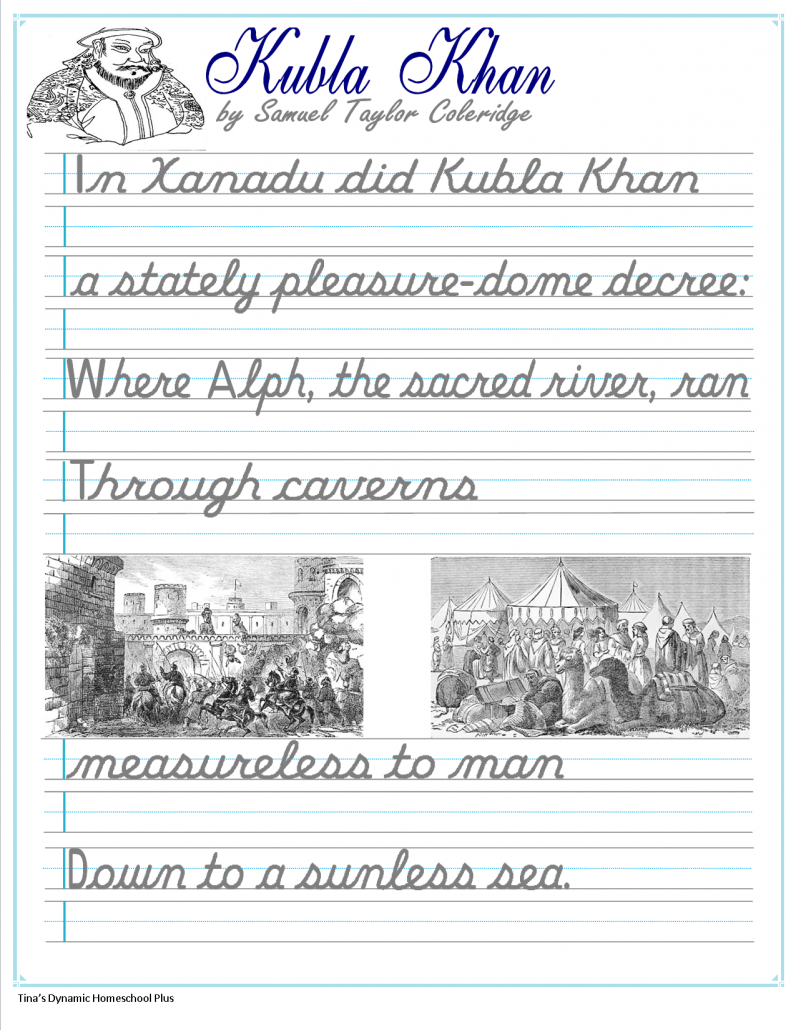 Kubla Khan
by Samuel Taylor Coleridge
In Xanadu did Kubla Khan
a stately pleasure-dome decree:
Where Alph, the sacred river, ran
Through caverns
measureless to man
Down to a sunless sea.
Tina's Dynamic Homeschool Plus